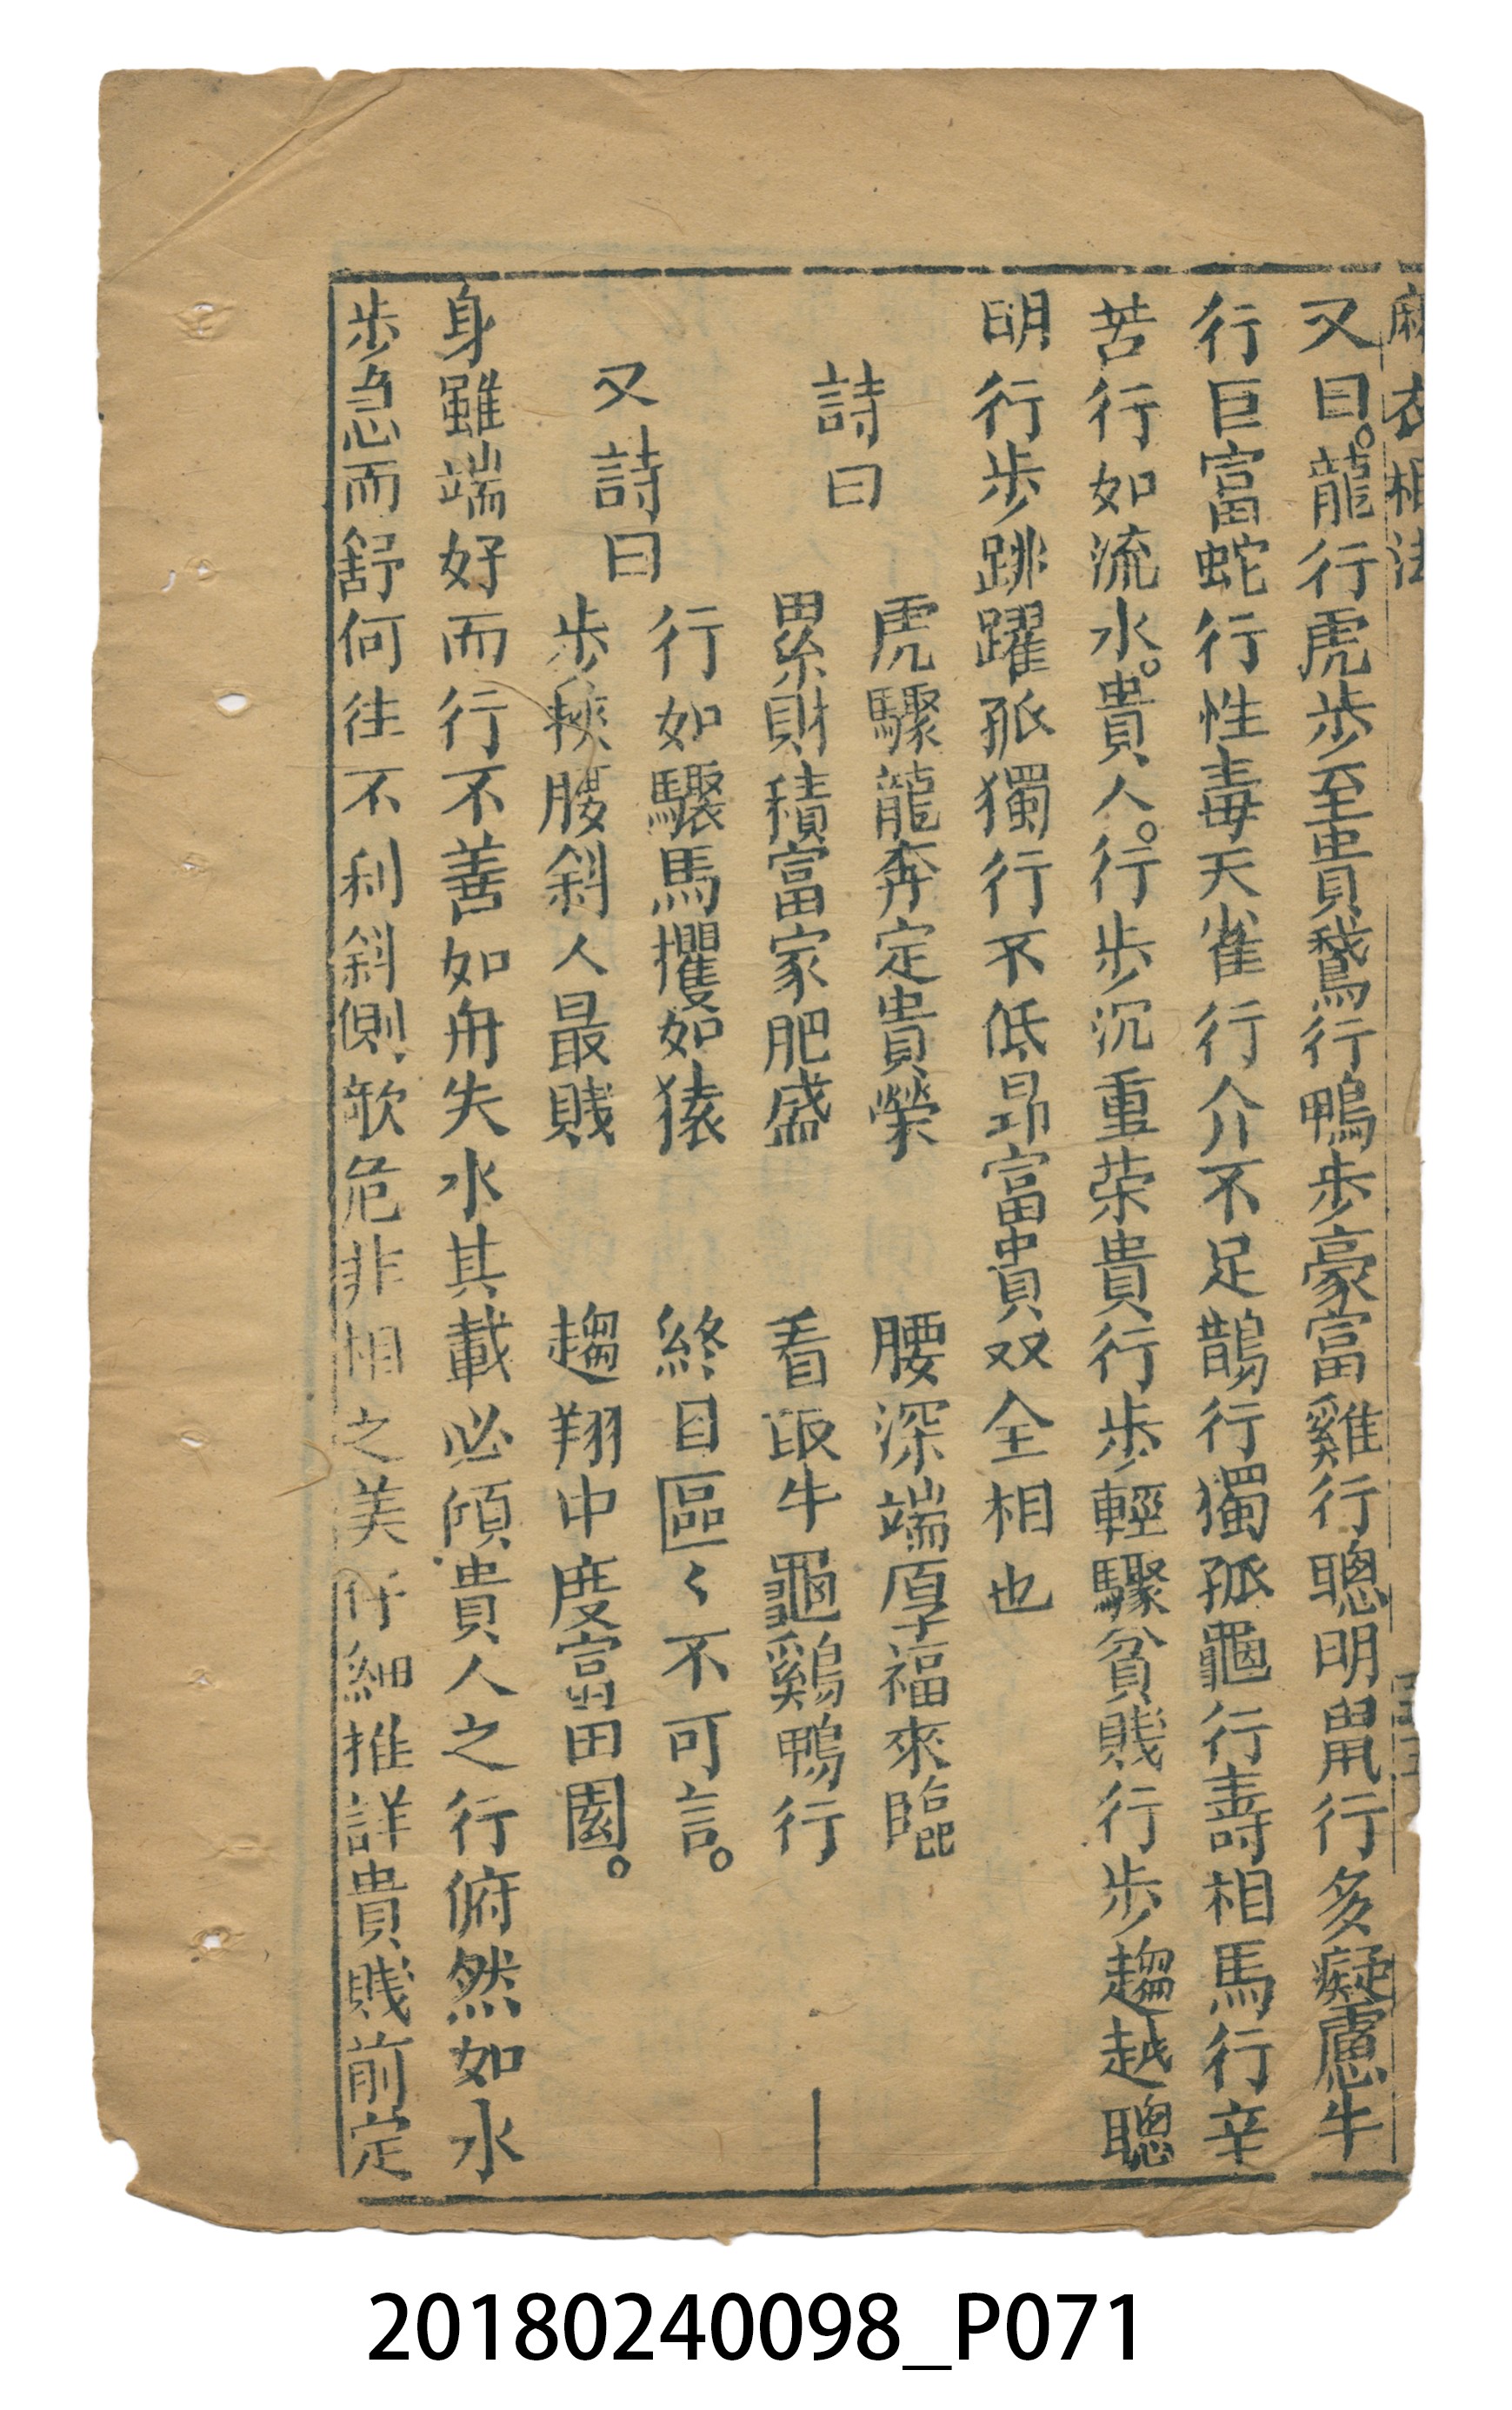 麻衣相法
又曰。龍行虎步至貴鵞行鴨步豪富雞行聰明鼠行多癡慮牛
行巨富蛇行性毒夭雀行介不足鵲行獨孤龜行壽相馬行辛
苦行如流水。貴人。行步沉重荣貴行步輕驟貧賎行步趨越聰
明行步跳躍孤獨行不低昻富貴双全相也
詩曰
虎驟龍奔定貴榮 腰深端厚福來臨
累財積富家肥盛 看取牛龜鷄鴨行
又詩曰
行如驟馬攫如猿 終目區〻不可言。
步狹腰斜人最賎 趨翔中度富田園。
身雖端好而行不善如舟失水其載必傾貴人之行俯然如水
步急而舒何往不利斜側欹危非相之美仔細推詳貴賎前定
20180240098_P071